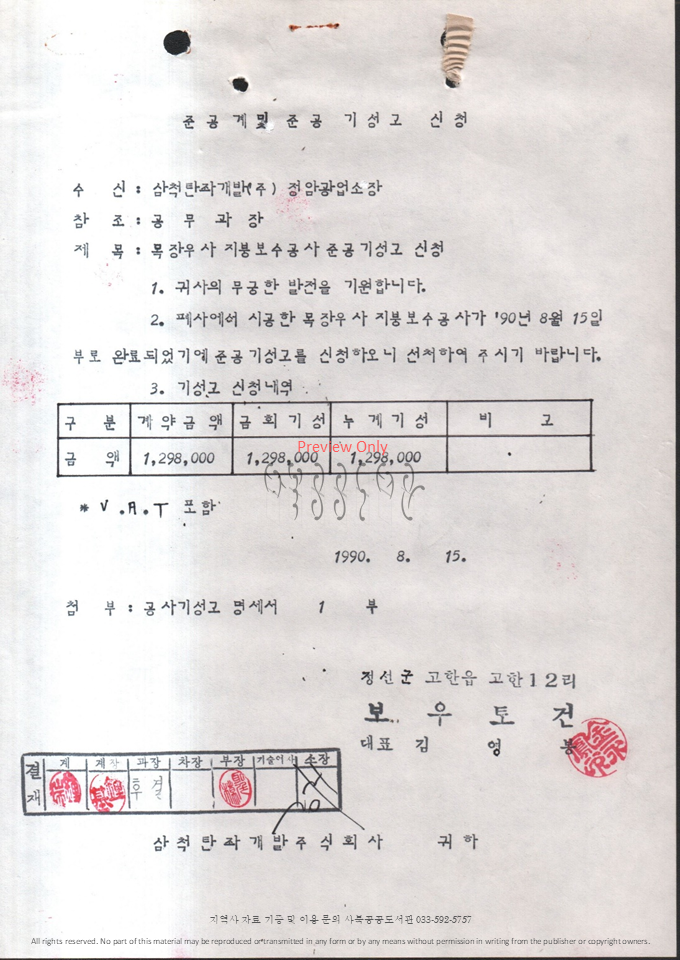 준공계및 준공 기성고 신청
수 신 : 삼척탄좌개발(주) 정암광업소장
참 조 : 공 무 과 장
제 목 : 목장우사 지붕보수공사 준공기성고 신청
1. 귀사의 무궁한 발전을 기원합니다.
2. 폐사에서 시공한 목장우사 지붕보수공사가 '90년 8월 15일
부로 완료되었기에 준공기성고를 신청하오니 선처하여 주시기 바랍니다.
3. 기성고 신청내역
구 분 계약금액 금회기성 누계기성 비 고
Preview Only
금 액 1,298,000 1,298,000 1,298,000
* V.A.T 포함
1990. 8. 15.
첨 부 : 공사기성고 명세서 1 부
정선군 고한읍 고한12리
보 우 토 건
대표 김 영 봉
결재 계 과장 차장 부장 기술이사 소장
후결
삼척탄좌개발주식회사 귀하
지역사 자료 기증 및 이용 문의 사북공공도서관 033-592-5757
All rights reserved. No part of this material may be reproduced or transmitted in any form or by any means without permission in writing from the publisher or copyright owners.